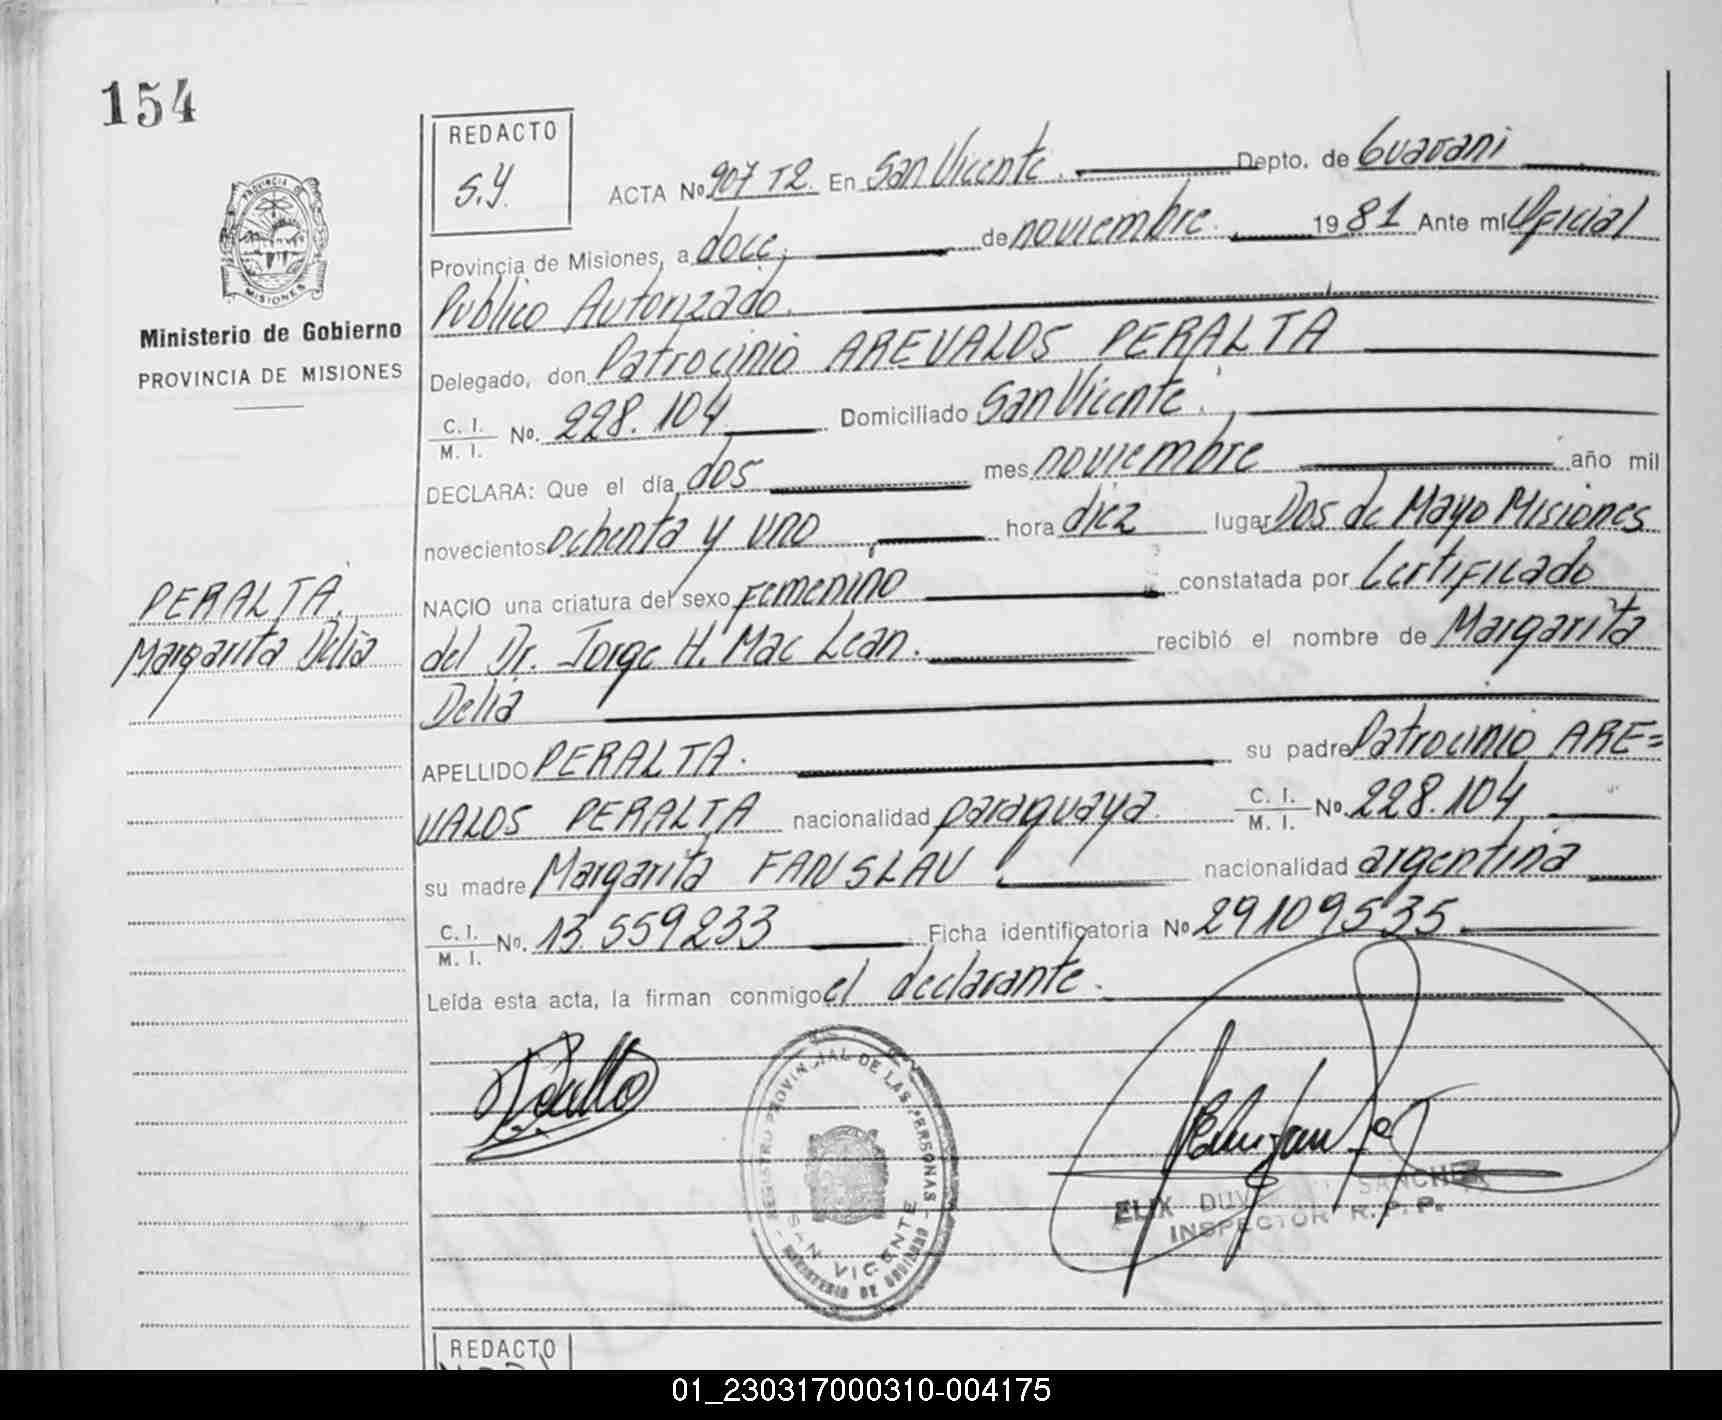 154
REDACTO
S.Y.
ACTA No 907 T2. En San Vicente. Depto. de Guarani
Provincia de Misiones, a doce, de noviembre. 1981 Ante mí Oficial
Publico Autorizado.
Delegado, don Patrocinio AREVALOS PERALTA
C. I. / M. I. No. 228.104 Domiciliado San Vicente.
DECLARA: Que el día dos mes noviembre año mil
novecientos ochenta y uno hora diez lugar Dos de Mayo Misiones
NACIO una criatura del sexo Femenino constatada por Certificado
del Dr. Jorge H. Mac Lean. recibió el nombre de Margarita
Delia
APELLIDO PERALTA. su padre Patrocinio ARE=
VALOS PERALTA nacionalidad paraguaya C. I. / M. I. No. 228.104
su madre Margarita FANSLAU nacionalidad argentina
C. I. / M. I. No. 13.559233 Ficha identificatoria No 29109535
Leída esta acta, la firman conmigo el declarante.
PROVINCIA DE
MISIONES
Ministerio de Gobierno
PROVINCIA DE MISIONES
PERALTA.
Margarita Delia
REGISTRO PROVINCIAL DE LAS PERSONAS
SAN VICENTE
MINISTERIO DE GOBIERNO
SANCHEZ
INSPECTOR R. P. P.
REDACTO
01_230317000310-004175